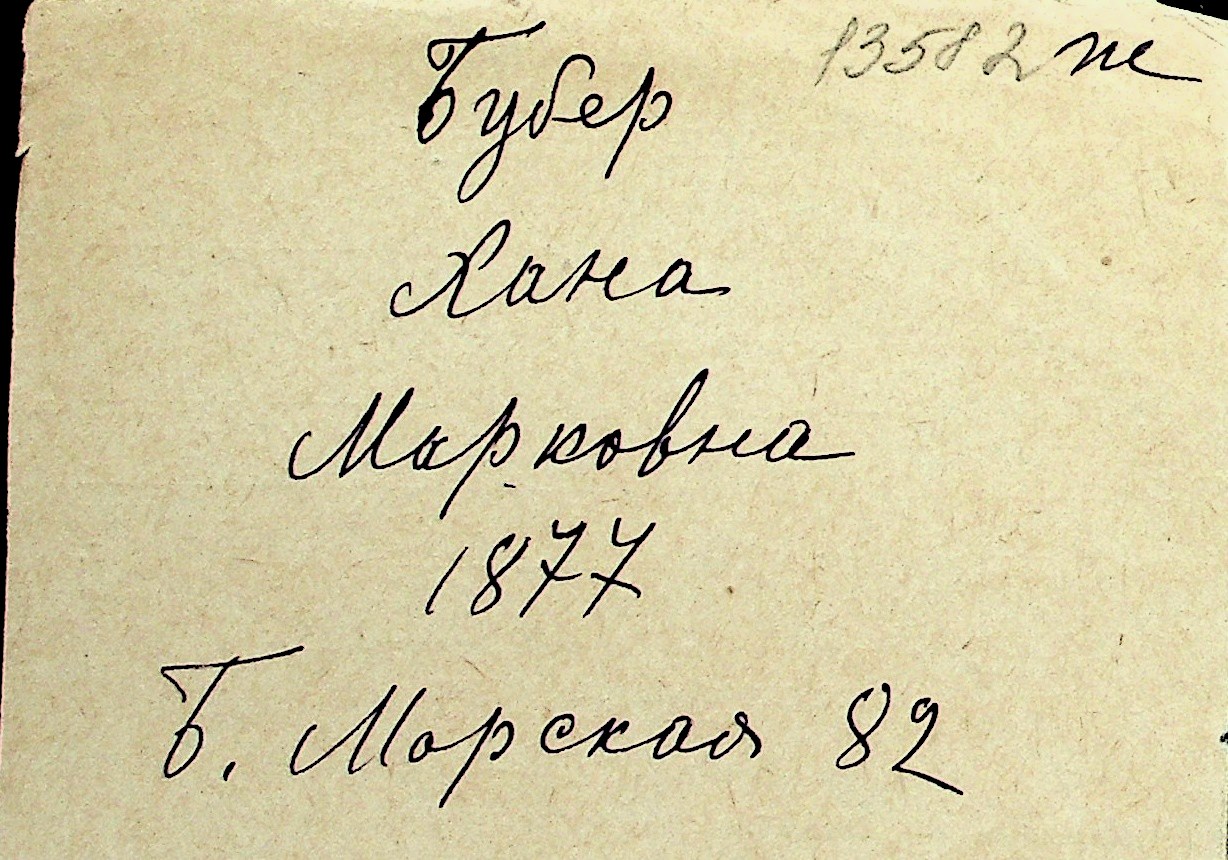 13582 ж
Бубер
Хана
Марковна
1877
Б. Морская 82